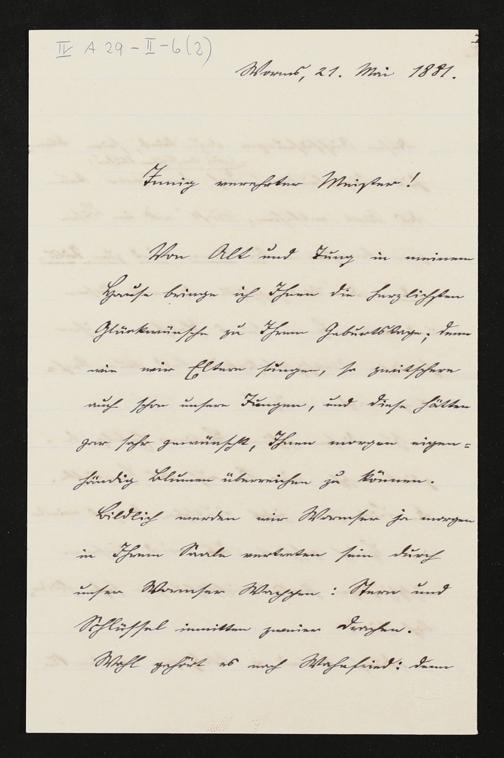 IV A 29-II-6(2)
Worms, 21. Mai 1881.
Innig verehrter Meister!
Von Alt und Jung in meinem
Hause bringe ich Ihnen die herzlichsten
Glückwünsche zu Ihrem Geburtstage; denn
wie wir Eltern sungen, so zwitschern
auch schon unsere Jungen, und diese hätten
gar sehr gewünscht, Ihnen morgen eigen=
händig Blumen überreichen zu können.
Bildlich werden wir Wormser ja morgen
in Ihrem Saale vertreten sein durch
unser Wormser Wappen: Stern und
Schlüssel inmitten zweier Drachen.
Wohl gehört es nach Wahnfried: denn